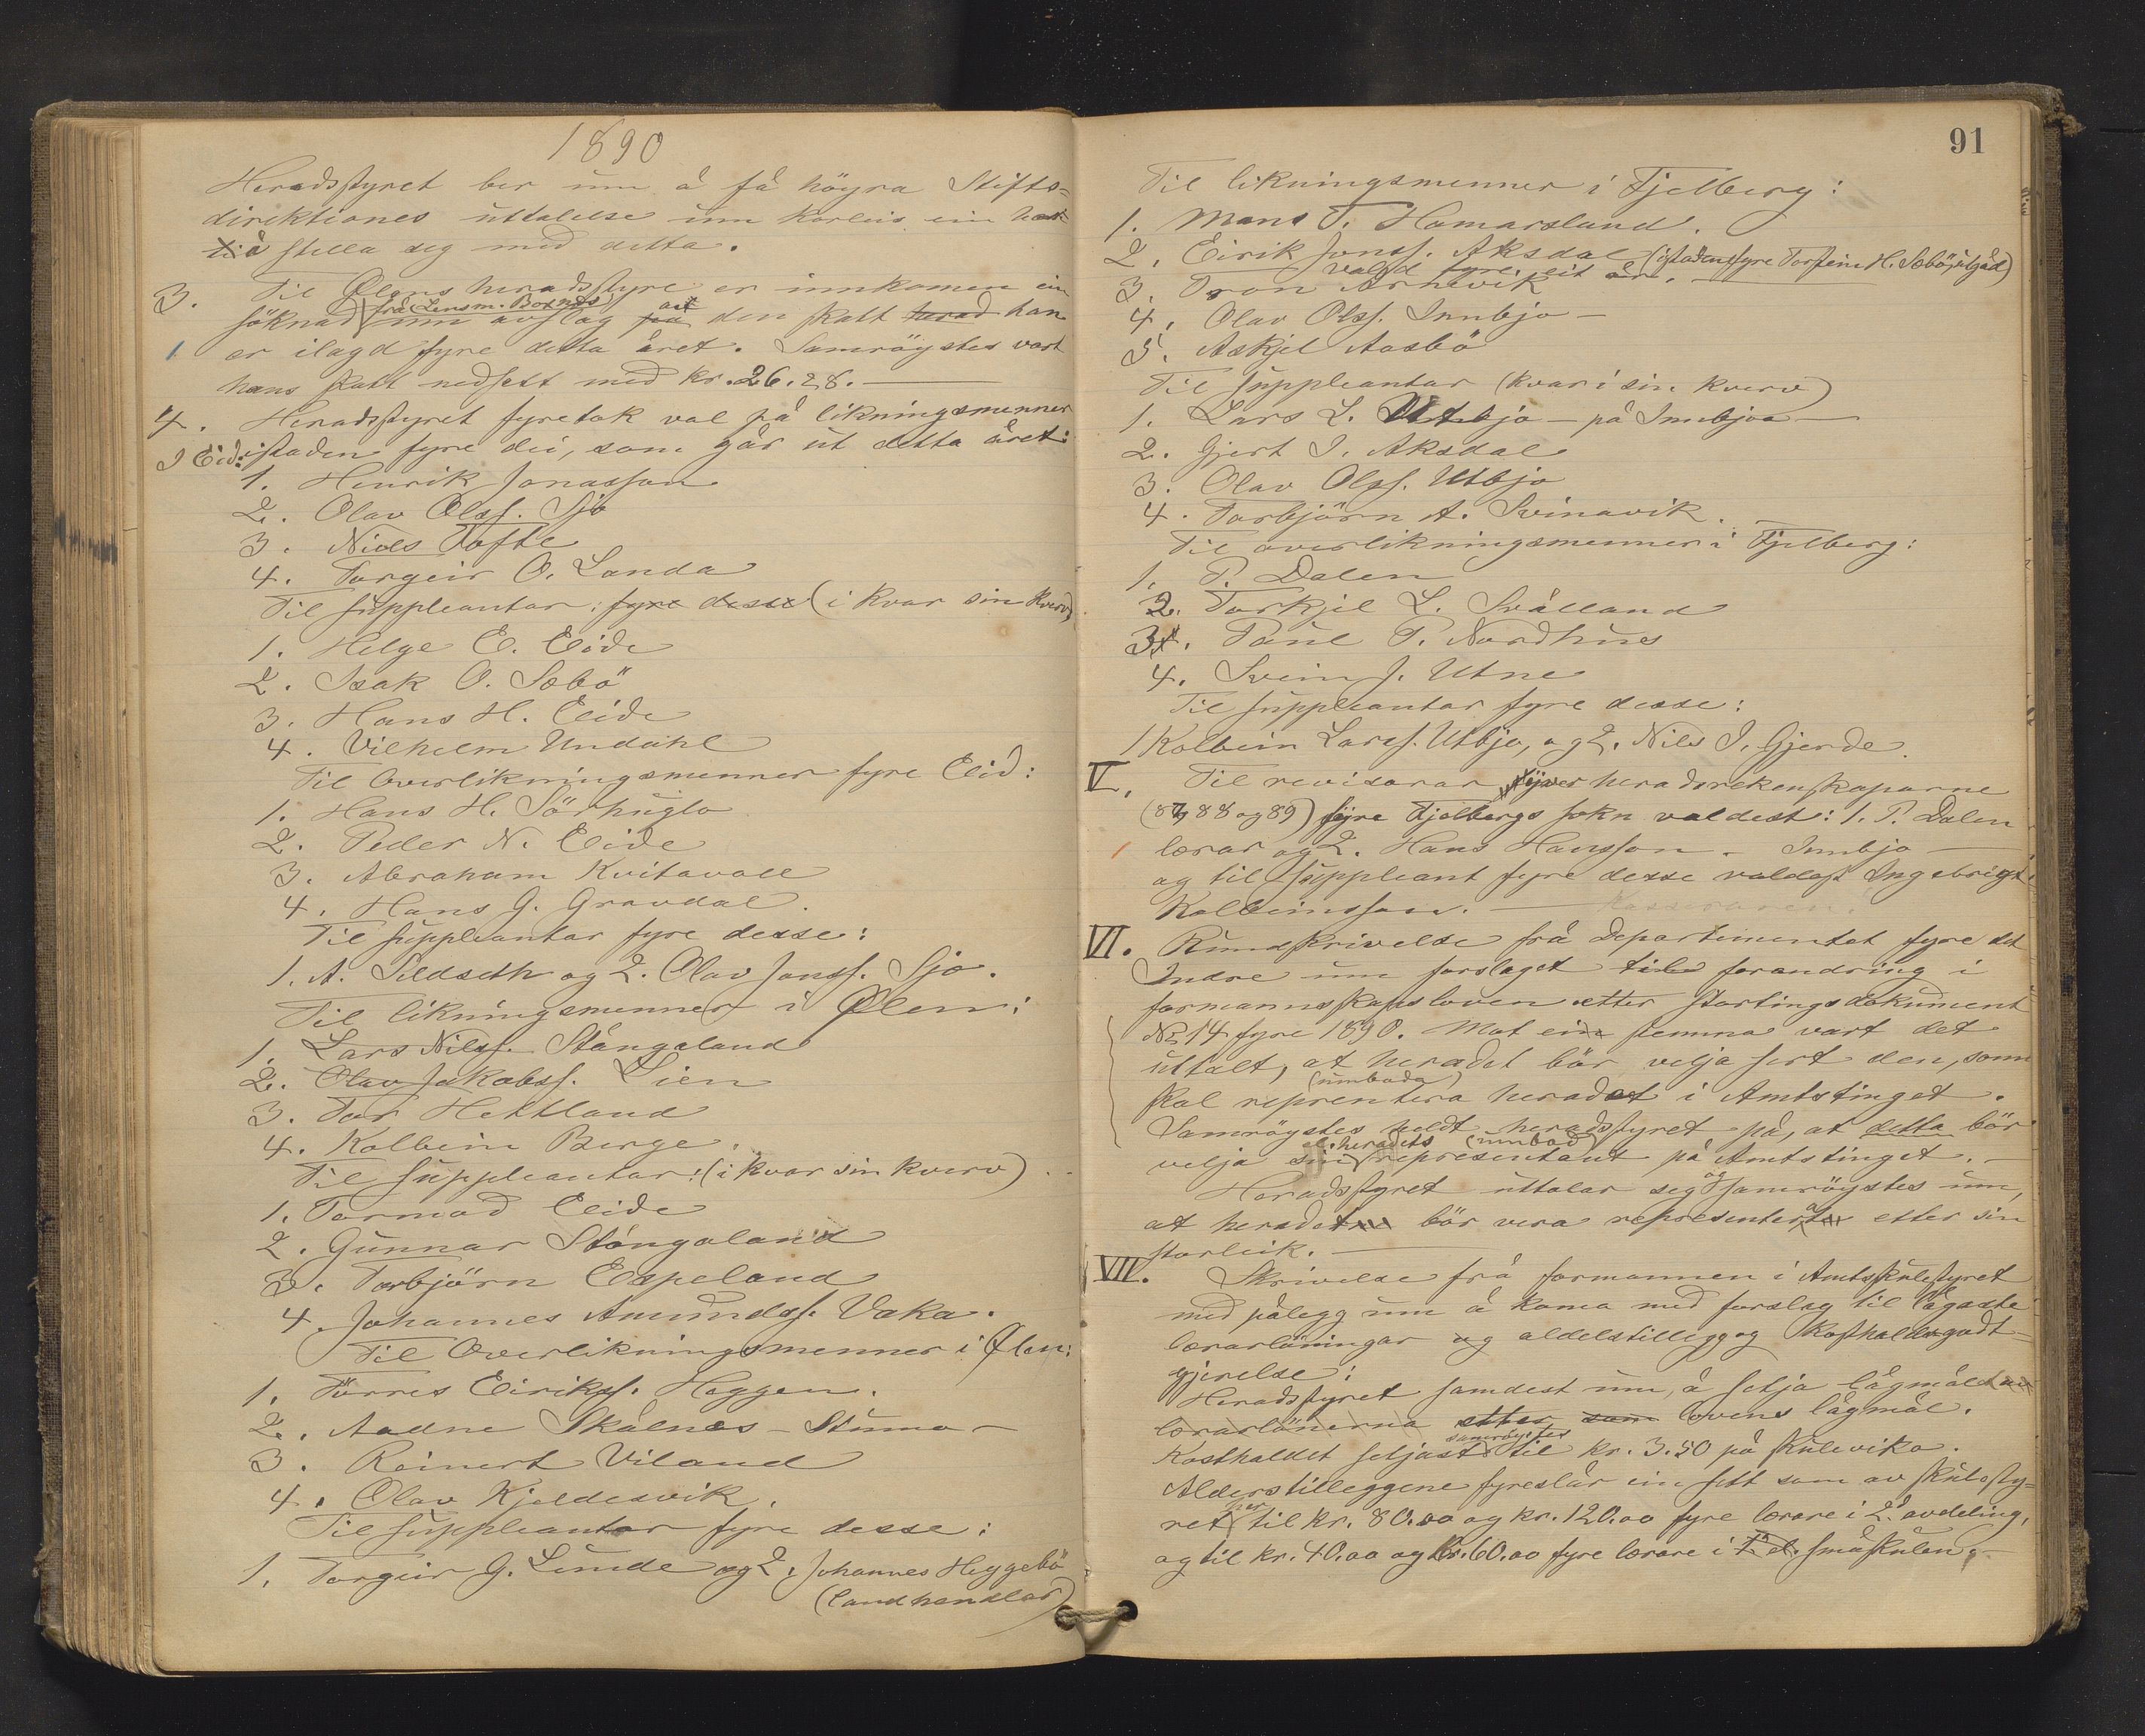 1890
Heradsstyret ber um å få högra Stifts-
direktiones uttalelse um korleis ein
å stella seg med detta.
3. Til Ølens heradsstyre er innkomen ein
söknad frå Lensm. Boxnæs um avslag av den skatt herad han
1 er ilagd fyre detta året. Samröystes vart
hans skatt nedsett med kr. 26.28. —
4. Heradsstyret fyretok val på likningsmenner
I Eid: istaden fyre dei, som går ut detta året:
1. Henrik Jonasson
2. Olav Olss. Sjo
3. Niels Tofte
4. Torgeir O. Landa
Til suppleantar: fyre desse (i kvar sin kverv)
1. Helge E. Eide
2. Isak O. Sæbö
3. Hans H. Eide
4. Vilhelm Undahl
Til Overlikningsmenner fyre Eid:
1. Hans H. Sörhuglo
2. Peder N. Eide
3. Abraham Kvitavoll
4. Hans G. Gravdal.
Til suppleantar fyre desse:
1. A. Sildseth og 2. Olav Jonss. Sjo.
Til likningsmenner i Ølen:
1. Lars Nilss. Stångeland
2. Olav Jakobss. Lien
3. Tor Hettland
4. Kolbein Berge.
Til suppleantar: (i kvar sin kverv)
1. Tormod Eide
2. Gunnar Stångaland
3. Torbjörn Espeland
4. Johannes Amundss. Vaka.
Til Overlikningsmenner i Ølen:
1. Törres Eirikss. Heggen.
2. Aadne Skålnes - Stumo -
3. Reinert Viland
4. Olav Kjeldesvik.
Til suppleantar fyre desse:
1. Torgeir G. Lunde og 2. Johannes Heggebö
(landhandlar)
91
Til likningsmenner i Fjelberg:
1. Mons T. Hamarsland.
2. Eirik Jonss. Aksdal (istadenfyre Torstein H. Sæbö, utgåd)
valgd fyre eit år.
3. Tron Arnevik
4. Olav Olss. Innbjo —
5. Askjel Aasbö
Til suppleantar (kvar i sin kverv)
1. Lars L. Utbjo - på Innbjoa —
2. Gjert I. Aksdal
3. Olav Olss. Utbjo
4. Torbjörn A. Svinavik.
Til overlikningsmenner i Fjelberg:
1. P. Dalen
2. Torkjel L. Svålland
3. Paul P. Nordhus
4. Svein J. Utne
Til suppleantar fyre desse:
1 Kolbein Larss. Utbjo, og 2. Nils I. Gjerde.
V. Til revisorar yver heradsrekenskaparne
(87, 88 og 89) fyre Fjelbergs sokn valdest: 1. P. Dalen
lærar og 2. Hans Hansson. Innbjo —
og til suppleant fyre desse valdest Ingebrigt
Kolbeinsson. —
VI. Rundskrivelse frå Departimentet fyre det
Indre um forslaget til forandring i
formannskapsloven etter stortingsdokument
No 14 fyre 1890. Mot ein stemma vart det
uttalt, at heradet bör velja sert den, som
(umboda)
skal reprentera heradet i Amtstinget.
Samröystes heldt heradsstyret på, at detta bör
el. heradets (umbod)
velja sin representant på Amtstinget. —
Heradsstyret uttalar seg og samröystes um,
at heradet bör vera representerat etter sin
storleik. —
VII. Skrivelse frå formannen i Amtsskulestyret
med pålegg um å koma med forslag til lågaste
lærarlöningar og aldelstillegg og Kosthaldsgodt-
gjerelse:
Heradsstyret samdest um, å setja lågmålet av
lærarlönerna etter som lovens lågmål.
samröystes
Kosthaldet setjast til kr. 3.50 på skulevika.
Alderstilleggene fyreslår ein sett som av skulesty-
ret her til kr. 80.00 og kr. 120.00 fyre lærare i 2. avdeling,
og til kr. 40.00 og kr. 60.00 fyre lærare i småskulen. —